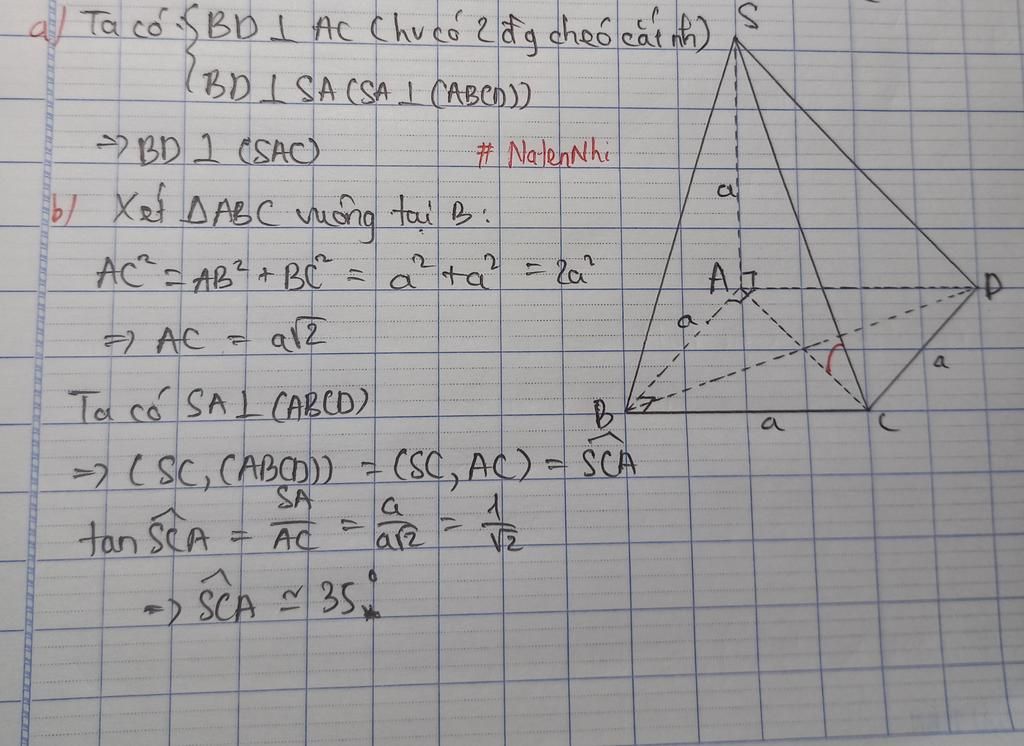 a) Ta có { BD ⊥ AC (hv có 2 đg chéo cắt nh)
BD ⊥ SA (SA ⊥ (ABCD))
=> BD ⊥ (SAC)
# NalenNhi
b) Xét ΔABC vuông tại B:
AC² = AB² + BC² = a² + a² = 2a²
=> AC = a√2
Ta có SA ⊥ (ABCD)
=> (SC, (ABCD)) = (SC, AC) = \widehat{SCA}
tan \widehat{SCA} = SA/AC = a/a√2 = 1/√2
=> \widehat{SCA} ≃ 35°
S
a
A
D
a
a
B
a
C